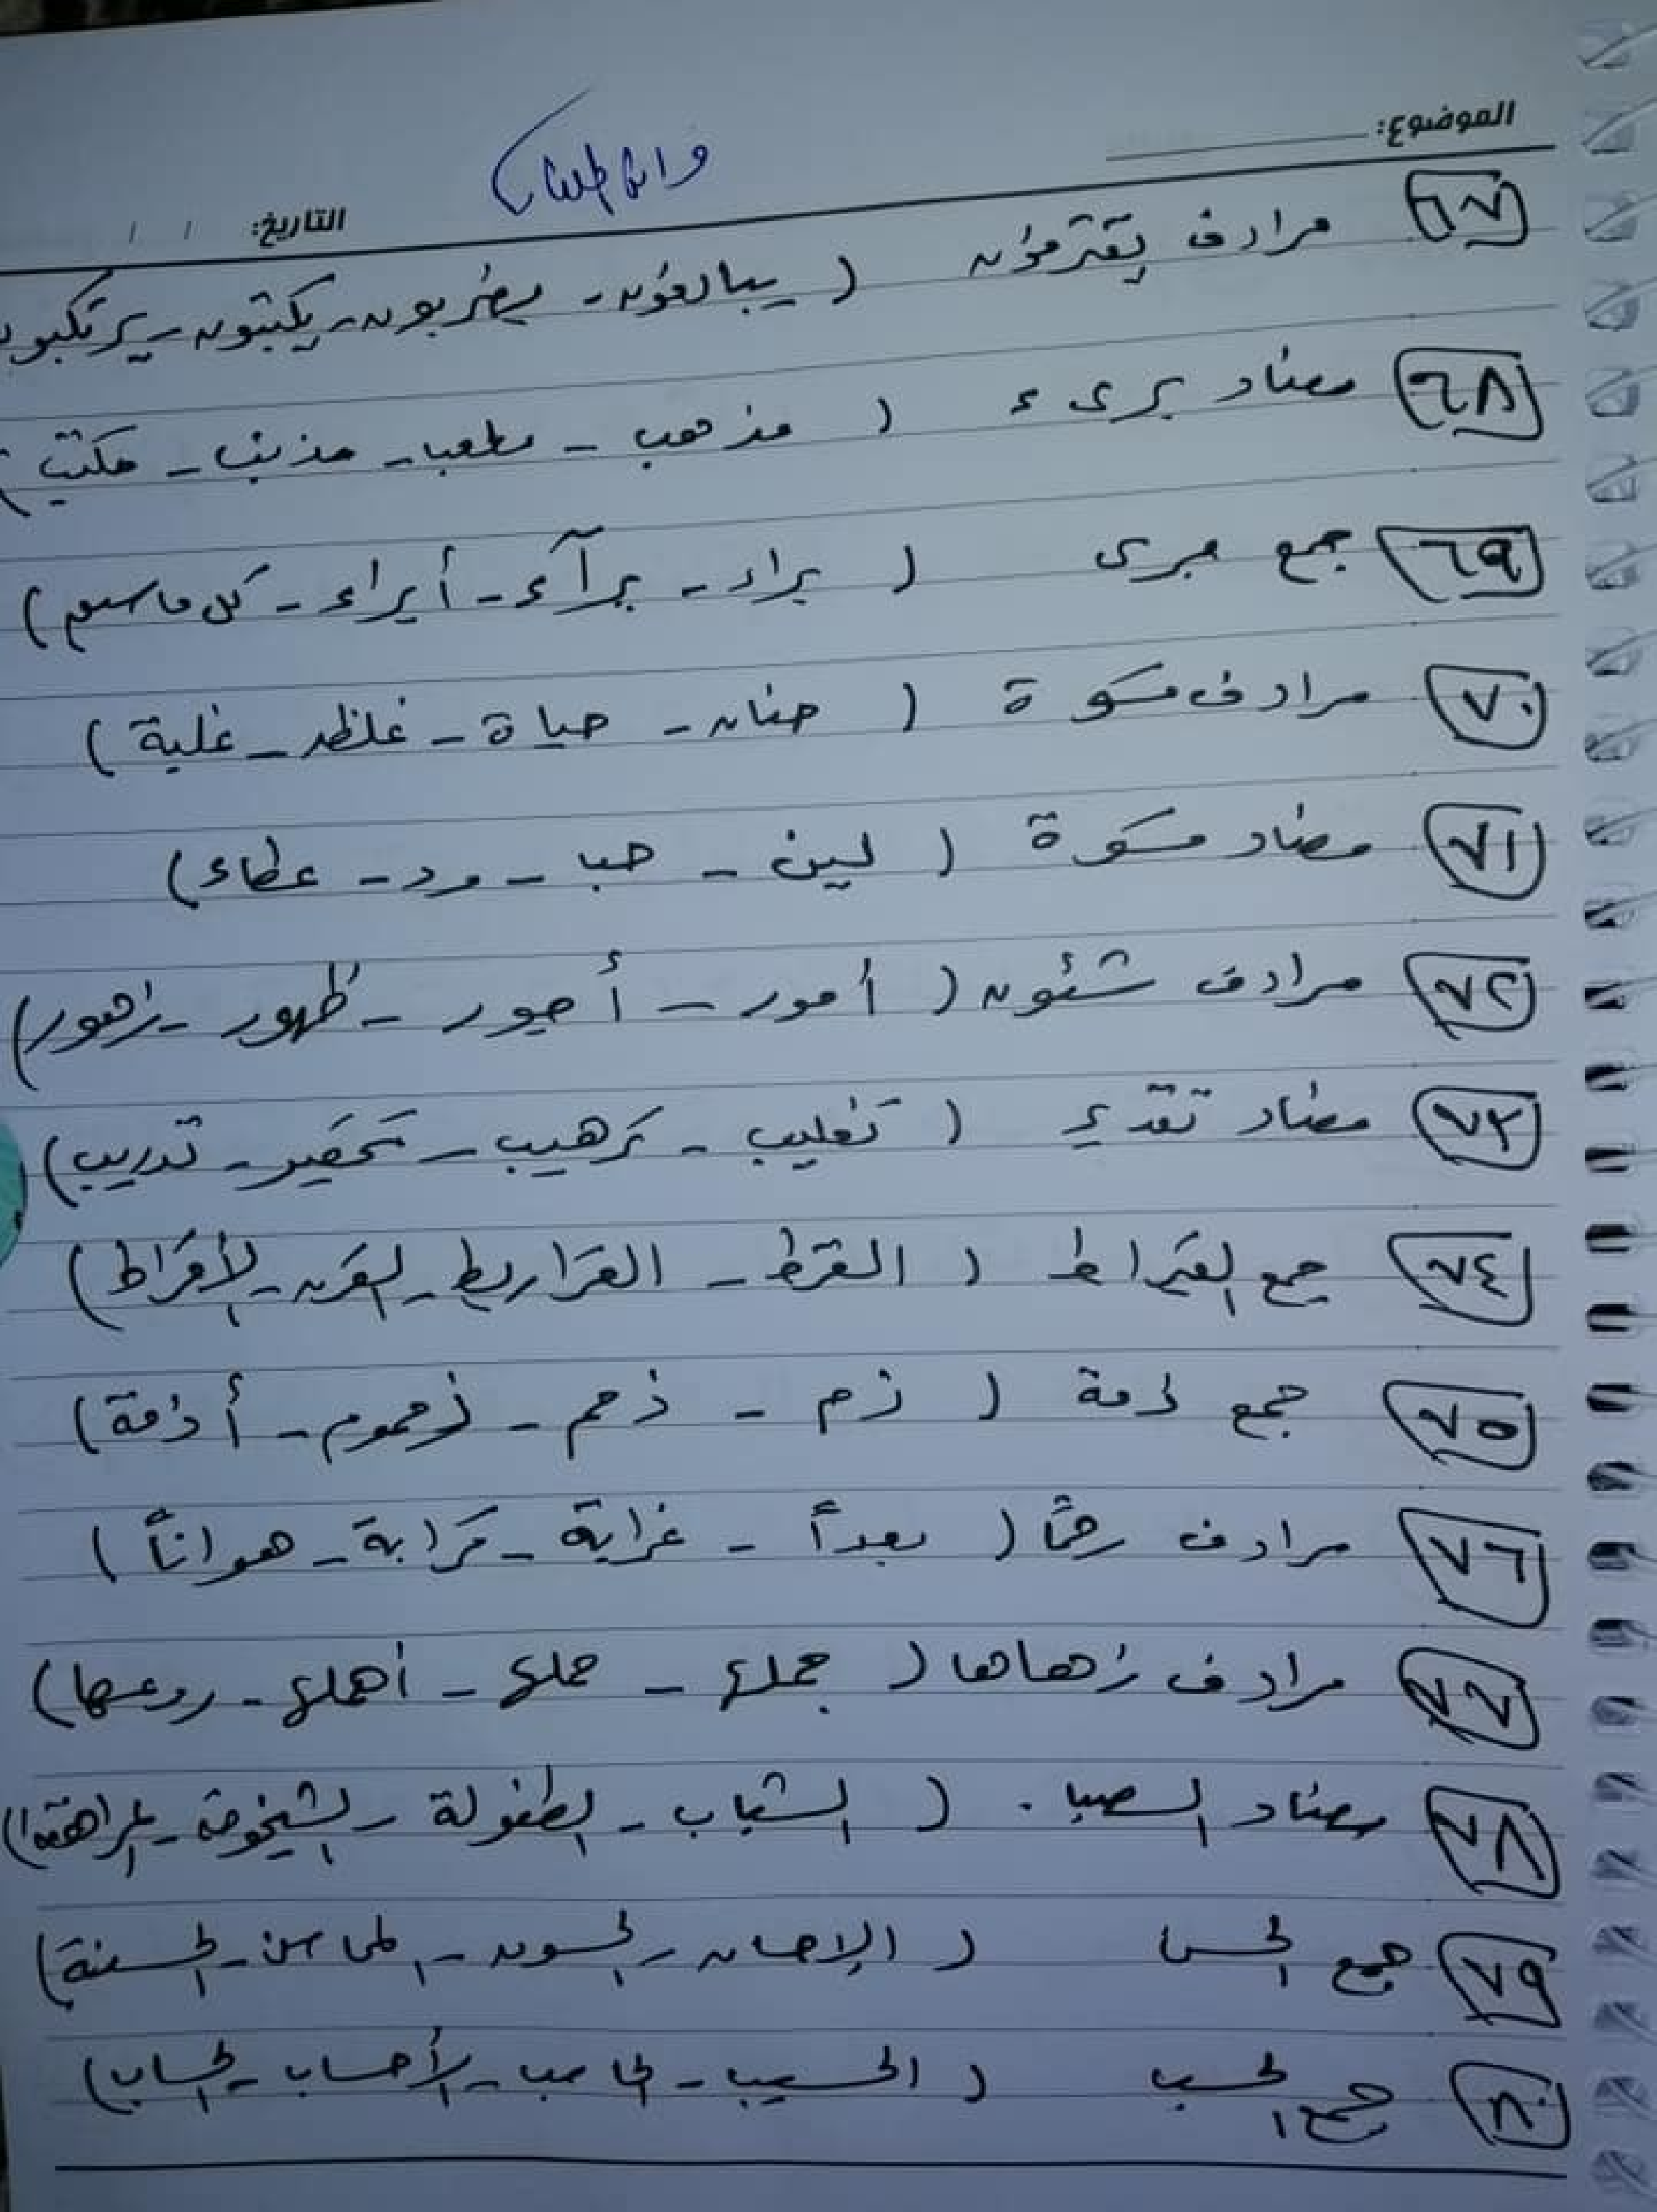 الموضوع:
التاريخ: / /
٦٧ مرادف يقترفون ( يبالغون - يضربون - يكتبون - يرتكبون
٦٨ مضاد برىء ( مذهب - ملعب - مذنب - مكتب )
٦٩ جمع برى ( براء - برآء - أبراء - كل ما سبق )
٧٠ مرادف قسوة ( حنان - حياة - غلظة - غلبة )
٧١ مضاد قسوة ( لين - حب - ود - عطاء )
٧٢ مرادف شئون ( أمور - أجور - ظهور - زهور )
٧٣ مضاد تقدير ( تغليب - ترهيب - تحقير - تدريب )
٧٤ جمع القيراط ( القرط - القراريط - القرن - الأقراط )
٧٥ جمع ذمة ( ذم - ذمم - ذمموم - أذمة )
٧٦ مرادف رحمًا ( بعداً - غرابة - قرابة - هواناً )
٧٧ مرادف زهاها ( جملها - حملها - أهملها - روعها )
٧٨ مضاد الصبا . ( الشباب - الطفولة - الشيخوخة - المراهقة )
٧٩ جمع الحسن ( الإحسان - الحسون - المحاسن - الحسنة )
٨٠ جمع الحسب ( الحسيب - الحاسب - الأحساب - الحساب )